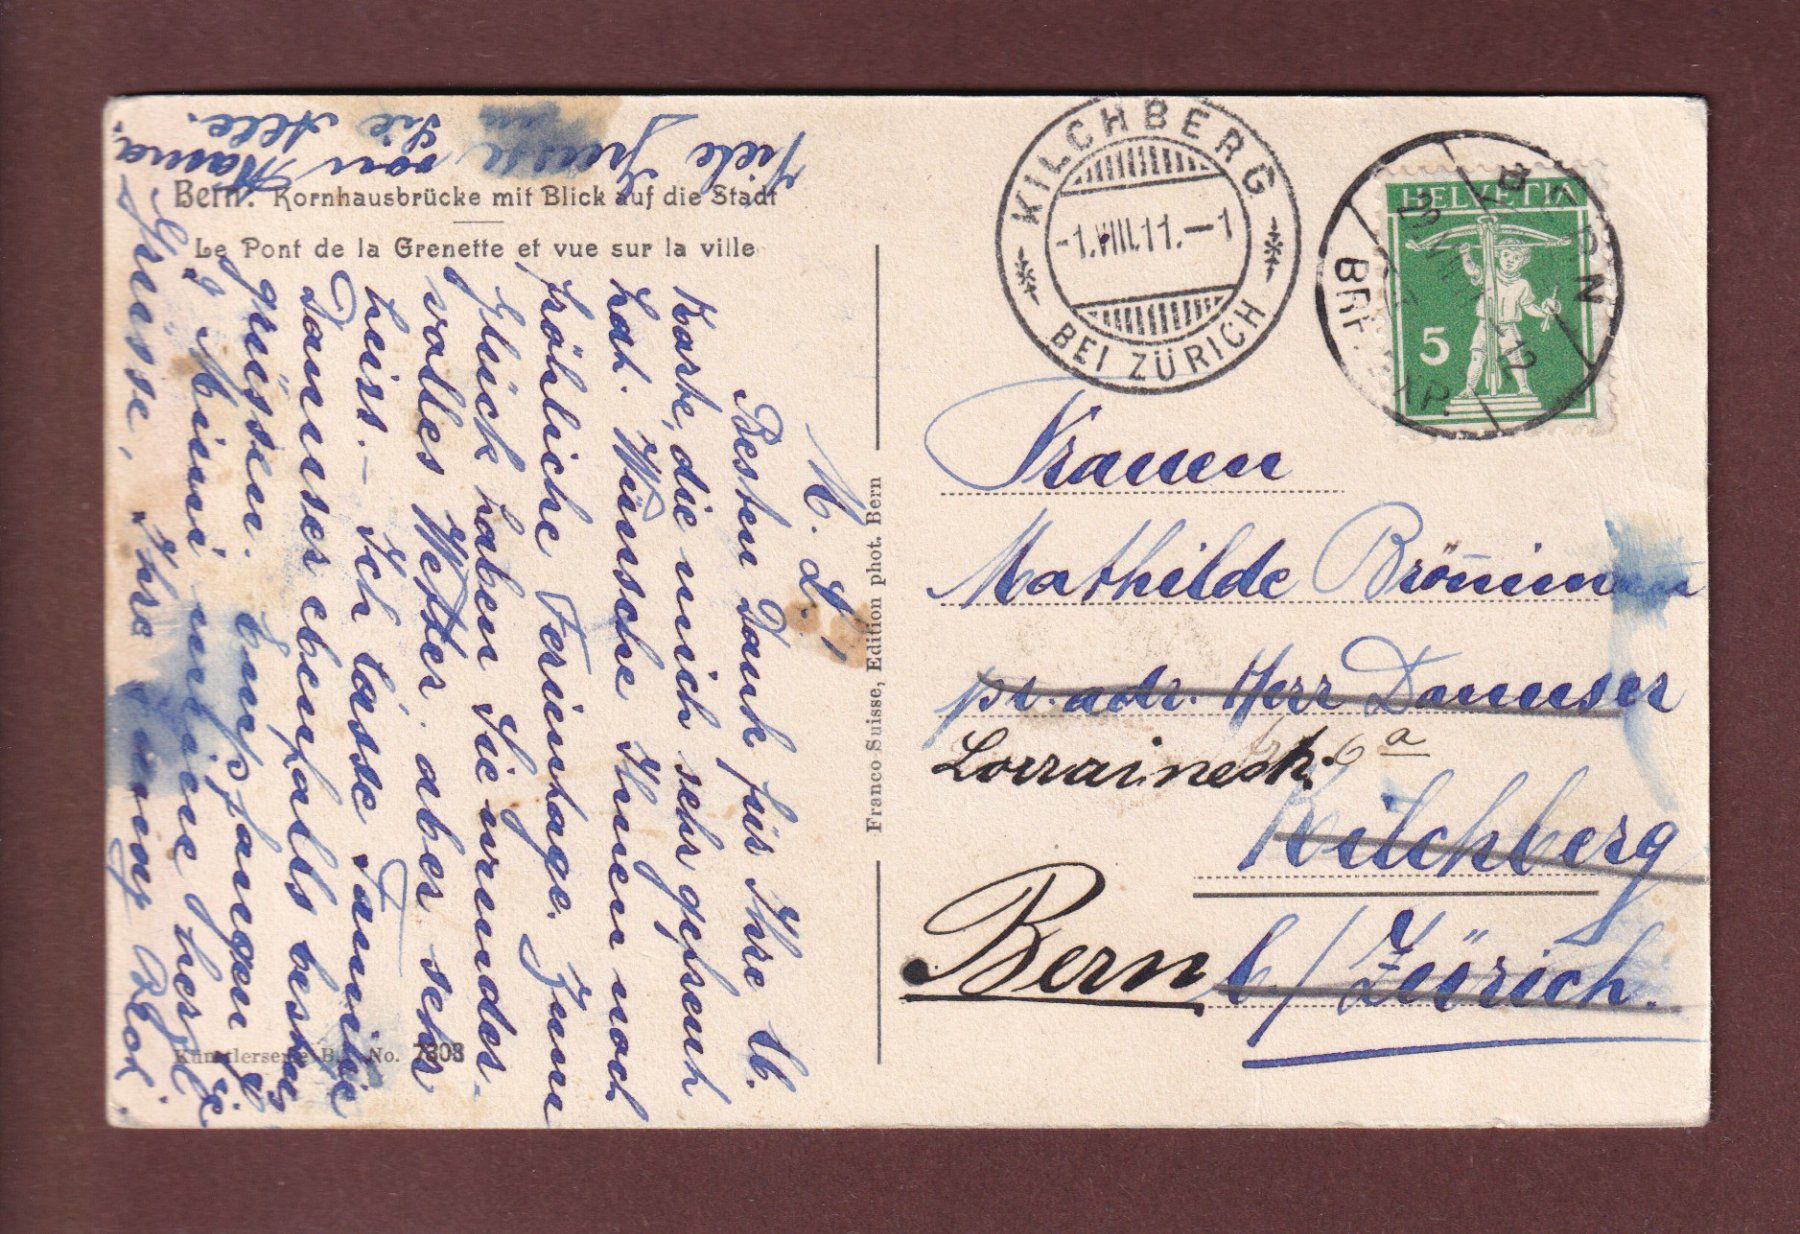 Bern. Kornhausbrücke mit Blick auf die Stadt
Le Pont de la Grenette et vue sur la ville
M. L.!
Besten Dank für Ihre lb.
Karte, die mich sehr gefreut
hat. Wünsche Ihnen noch
fröhliche Ferientage. Zum
Glück haben Sie wunder-
volles Wetter, aber sehr
heiss. – Ich lasse Familie
Danuser ebenfalls bestens
grüssen. Empfangen Sie
&amp; Mimi meine herzl.
Grüsse, Ihre
Viele Grüsse von Mama
Sie Alle.
Künstlerserie B. No. 7303
Franco-Suisse, Edition phot. Bern
KILCHBERG
-1.VIII.11.-1
BEI ZÜRICH
BERN
12
BRF.EXP.
HELVETIA
5
Frauen
Mathilde Brönimann
pr. adr. Herr Danuser
Lorrainestr. 6a
Kilchberg
Bern b/Zürich.